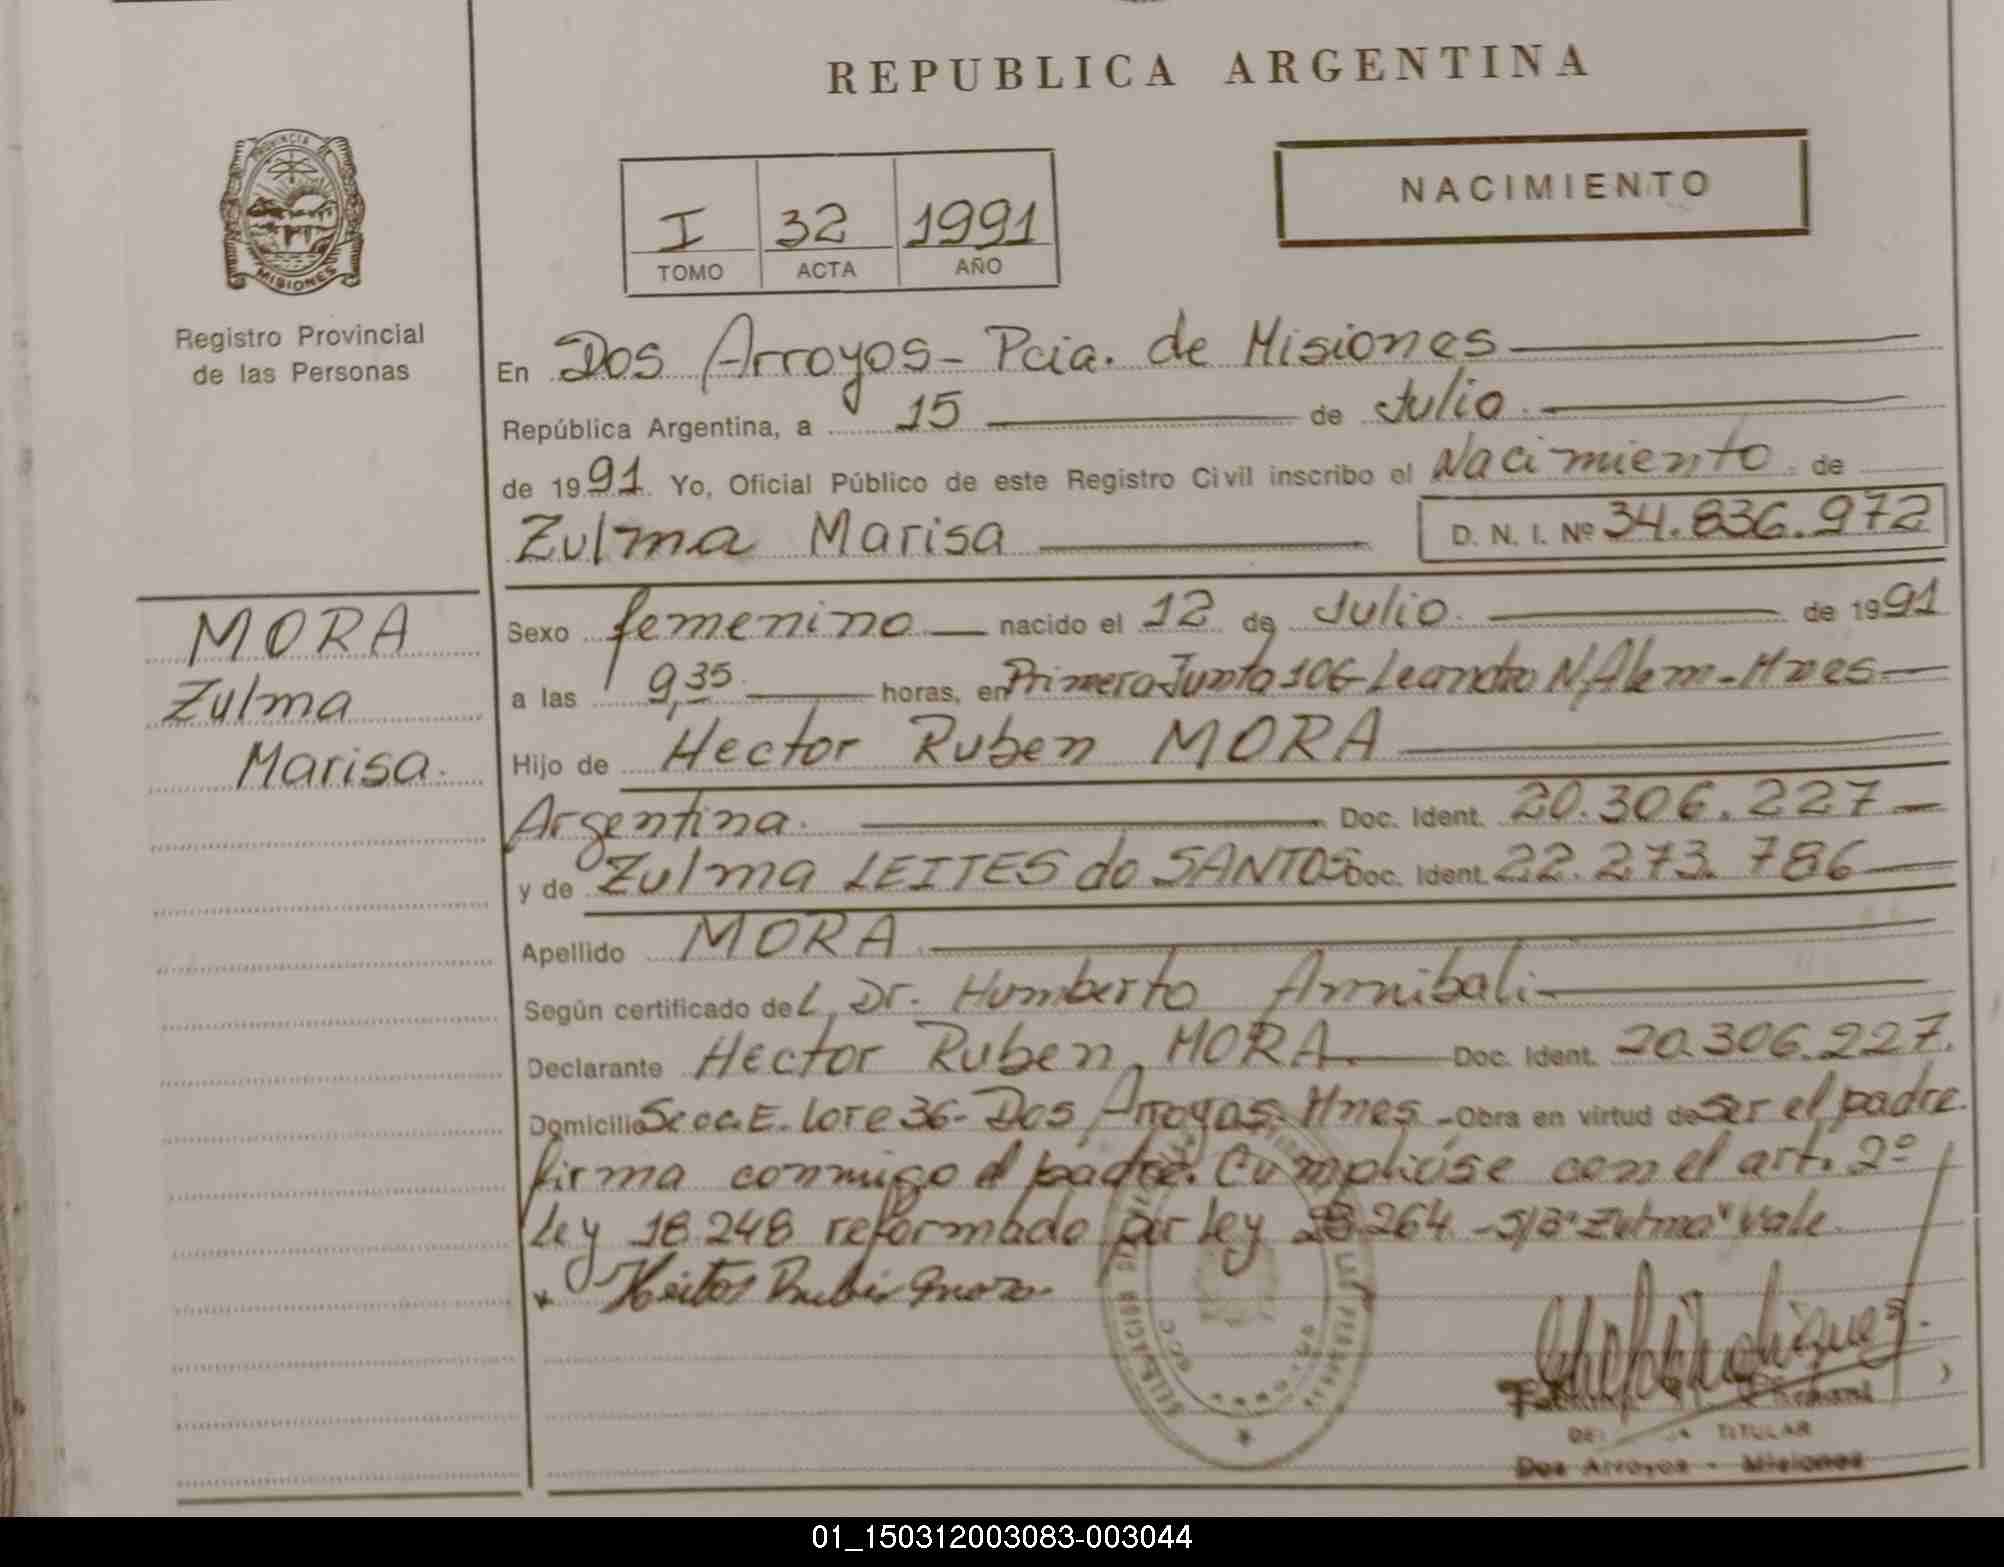 REPUBLICA ARGENTINA
PROVINCIA DE
MISIONES
Registro Provincial
de las Personas
NACIMIENTO
I 32 1991
TOMO ACTA AÑO
En Dos Arroyos - Pcia. de Misiones
República Argentina, a 15 de Julio
de 1991. Yo, Oficial Público de este Registro Civil inscribo el Nacimiento de
Zulma Marisa D. N. I. Nº 34.836.972
MORA
Zulma
Marisa.
Sexo femenino nacido el 12 de Julio de 1991
a las 9,35 horas, en Primera Junta 106 - Leandro N. Alem - Mnes
Hijo de Hector Ruben MORA
Argentina. Doc. Ident. 20.306.227
y de Zulma LEITES do SANTOS Doc. Ident. 22.273.786
Apellido MORA
Según certificado del Dr. Humberto Annibali
Declarante Hector Ruben MORA. Doc. Ident. 20.306.227.
Domicilio Secc. E. Lote 36 - Dos Arroyos. Mnes - Obra en virtud de ser el padre
firma conmigo el padre. Cumplióse con el art. 2º
Ley 18.248 reformado por Ley 23.264. - S/B "Zulma" Vale
TITULAR
Dos Arroyos - Misiones
01_150312003083-003044